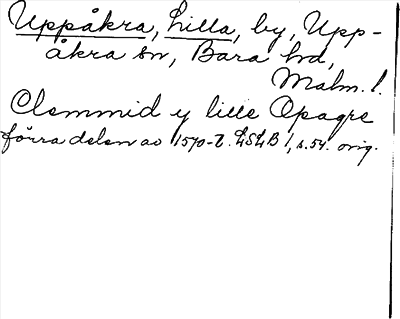 Uppåkra, Lilla, by, Upp-
åkra sn, Bara hd,
Malm. l.
Clemmid y lille Opagre
förra delen av 1570-t. LSLB 1, s. 54. orig.